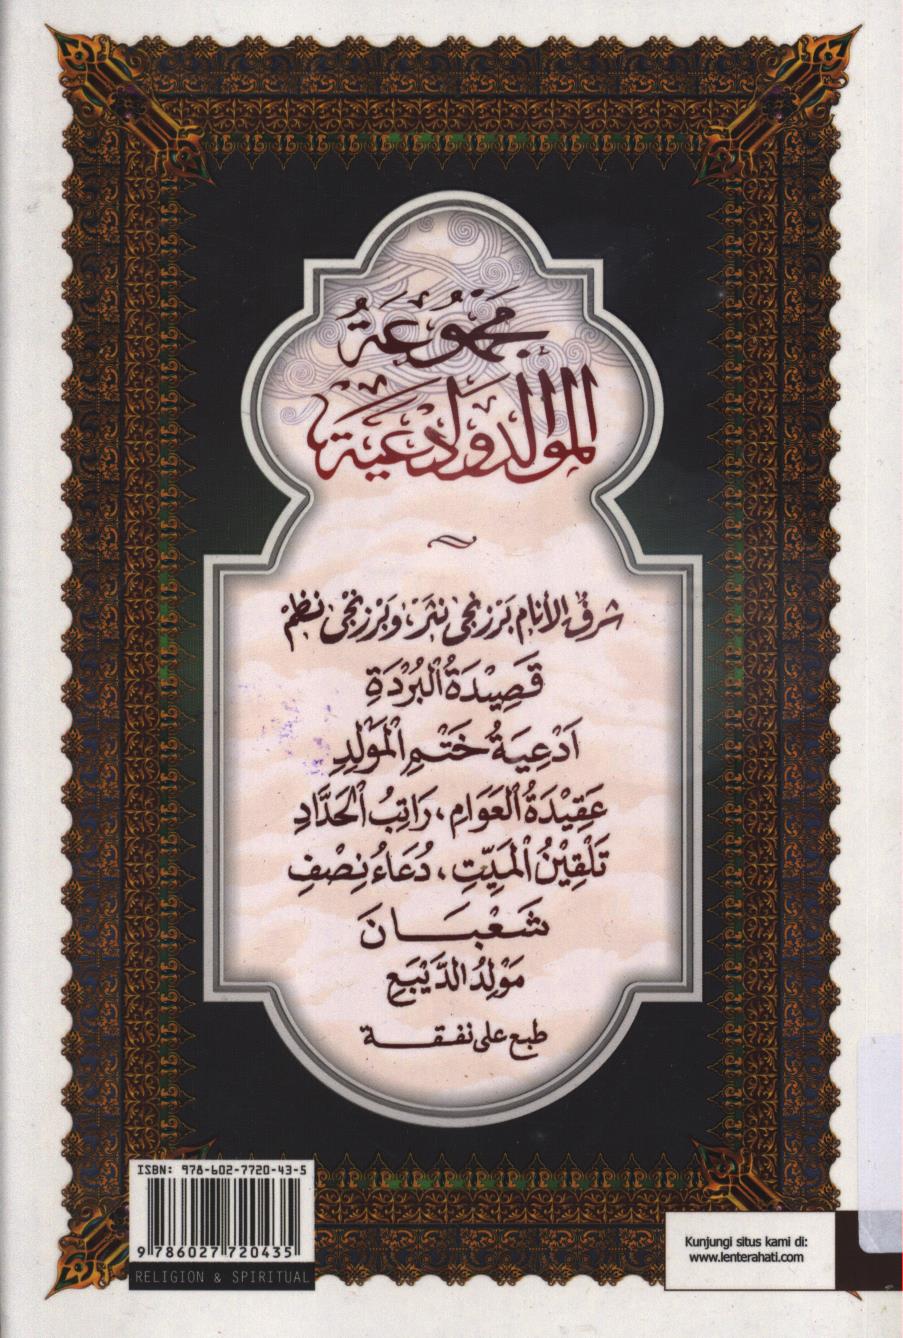 مجموعة
الموالد وادعية
شرف الأنام، برزنجى نثر، وبرزنجى نظم
قَصِيْدَةُ الْبُرْدَةِ
اَدْعِيَةُ خَتْمِ الْمَوْلِدِ
عَقِيْدَةُ الْعَوَامِ، رَاتِبُ الْحَدَّادِ
تَلْقِيْنُ الْمَيِّتِ، دُعَاءُ نِصْفِ
شَعْبَانَ
مَوْلِدُ الدَّيْبَعِ
طبع على نفقة
ISBN: 978-602-7720-43-5
9 786027 720435
RELIGION & SPIRITUAL
Kunjungi situs kami di:
www.lenterahati.com